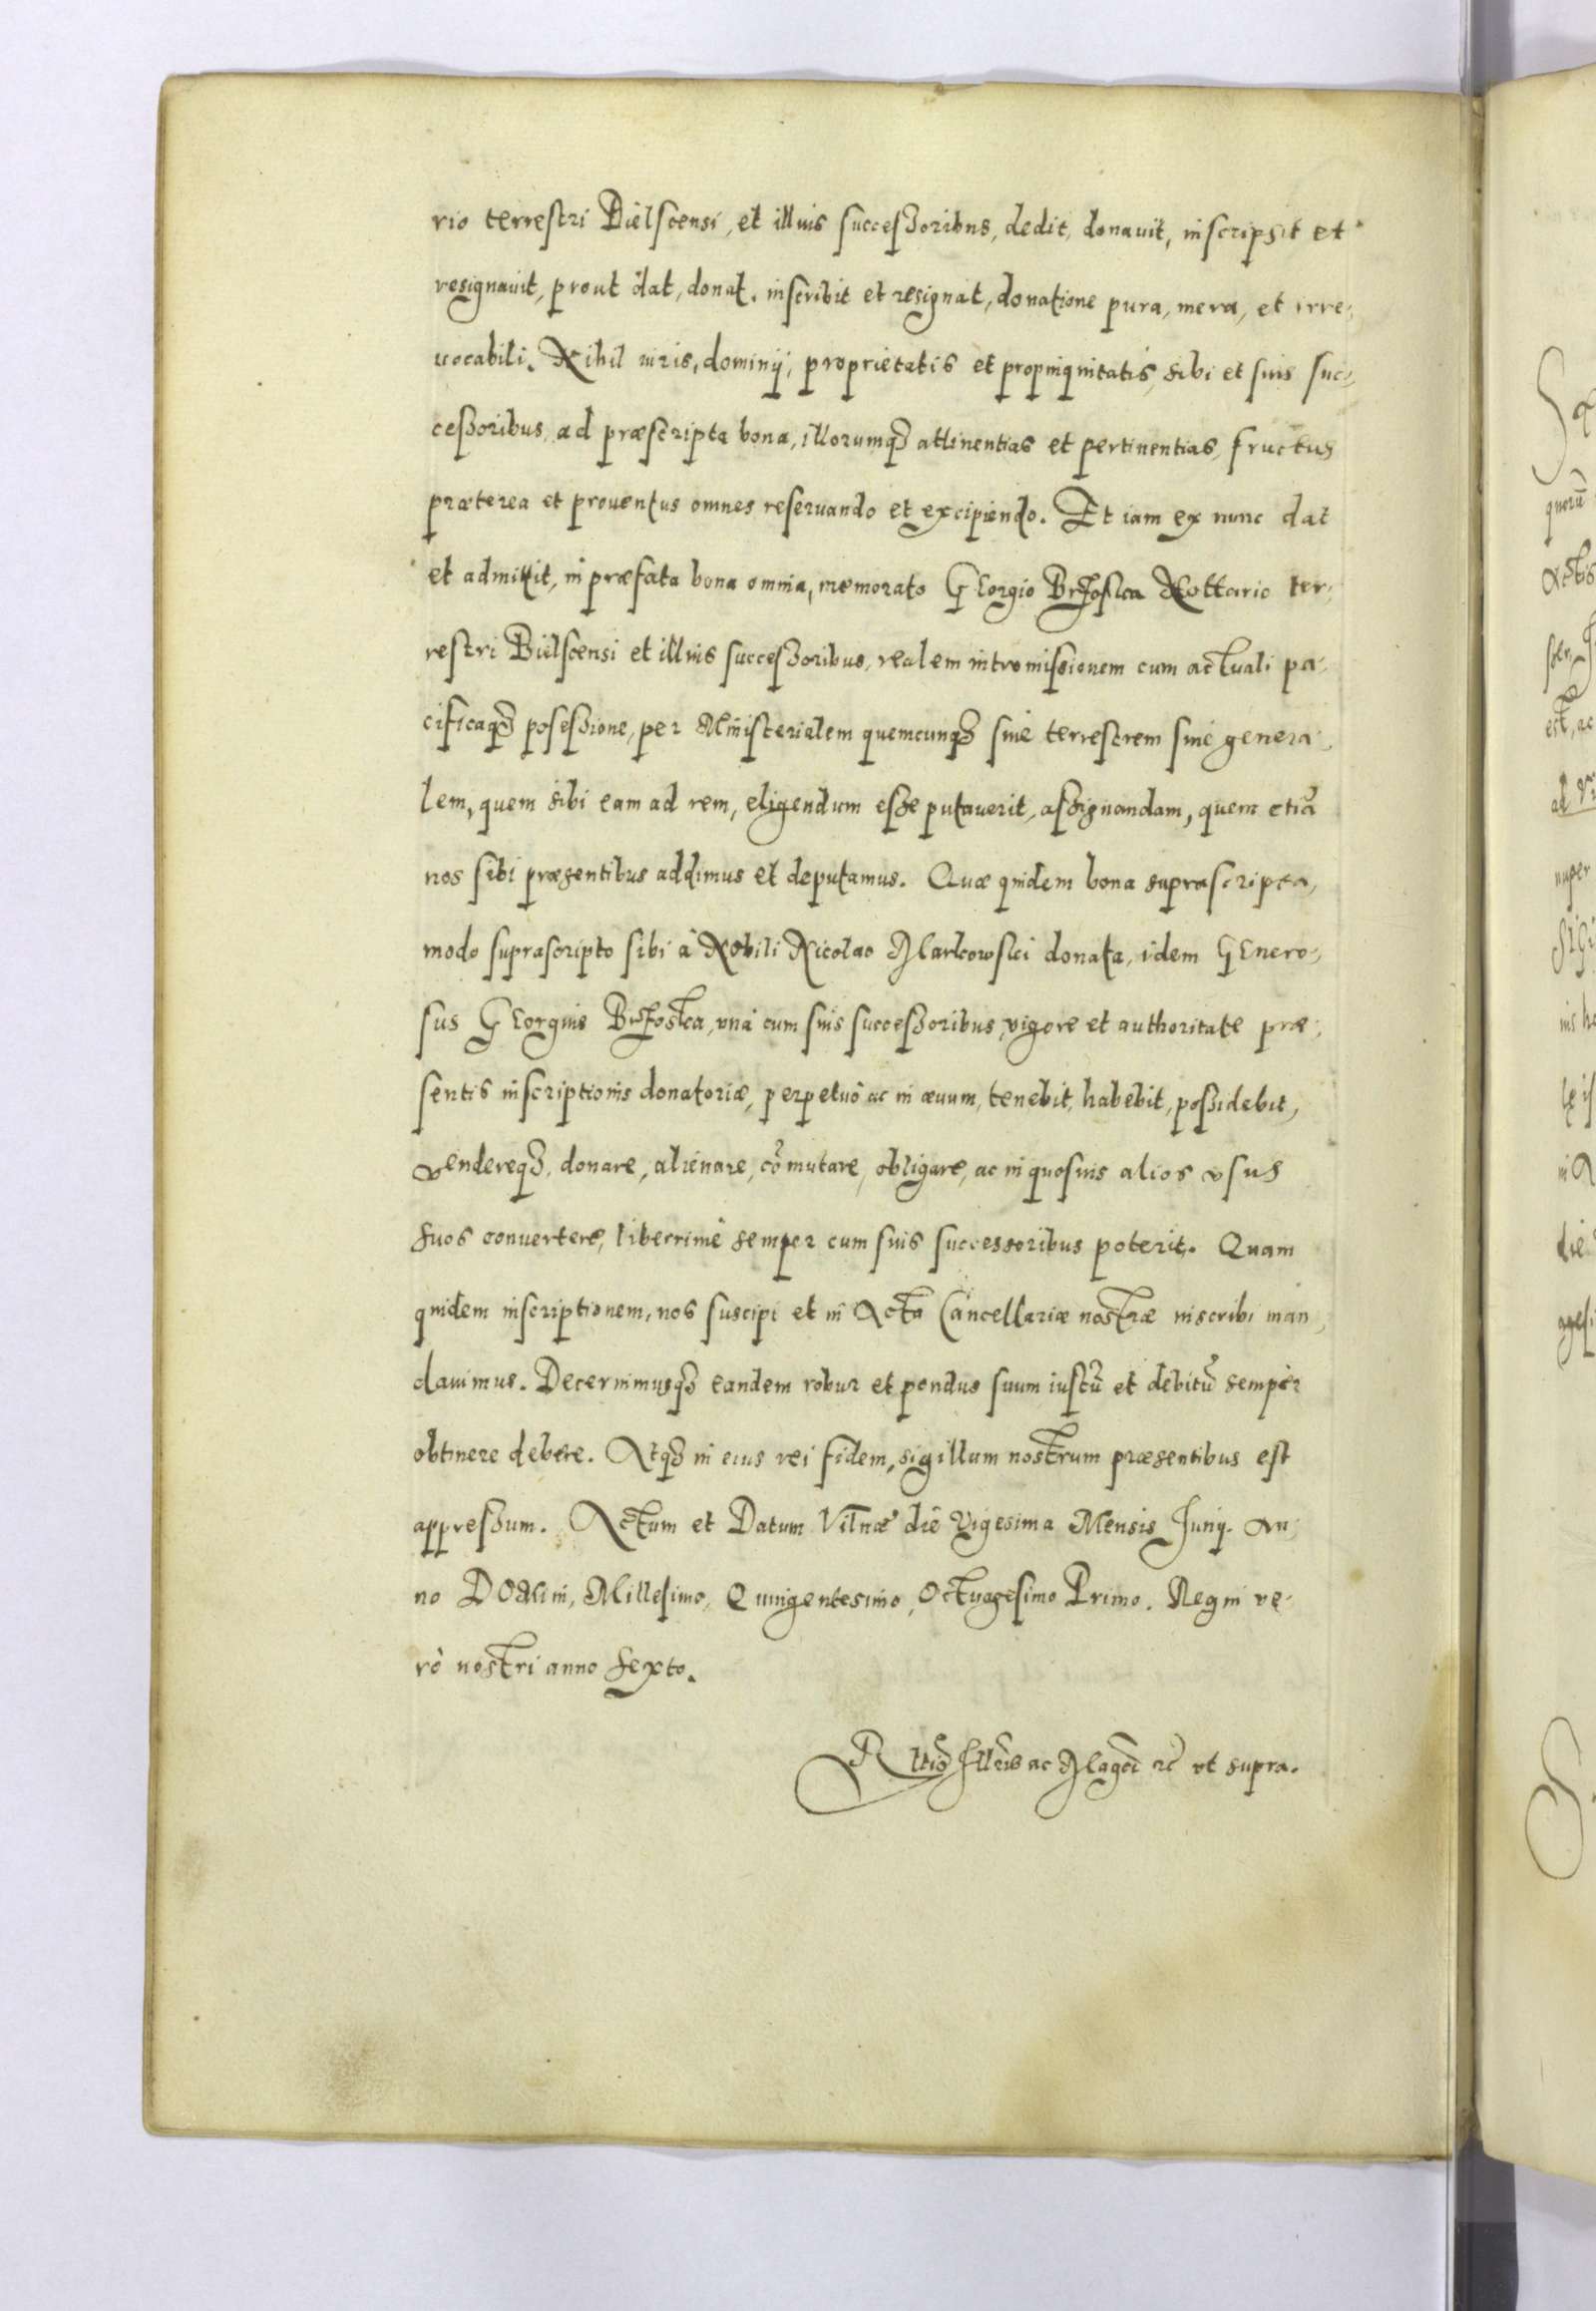 rio terrestri Bielscensi, et illius successoribus, dedit, donauit, inscripsit et
resignauit, prout dat, donat, inscribit et resignat, donatione pura, mera, et irre-
uocabili. Nihil iuris, dominij, proprietatis et propinquitatis, sibi et suis suc-
cessoribus, ad præscripta bona, illorumq3 attinentias et pertinentias, fructus
præterea et prouentus omnes reseruando et excipiendo. Et iam ex nunc dat
et admittit, in præfata bona omnia, memorato GEorgio Brzoska Nottario ter-
restri Bielscensi et illius successoribus, realem intromissionem cum actuali pa-
cificaq3 posessione, per Ministerialem quemcunq3 siue terrestrem siue genera-
lem, quem sibi eam ad rem, eligendum esse putauerit, assignandam, quem etiã
nos sibi præsentibus addimus et deputamus. Quæ quidem bona suprascripta,
modo suprascripto sibi à Nobili Nicolao Markowski donata, idem GEnero-
sus GEorgius Brzoska, vnà cum suis successoribus, vigore et authoritate præ-
sentis inscriptionis donatoriæ, perpetuò ac in æuum, tenebit, habebit, possidebit,
vendereq3, donare, alienare, cõmutare, obligare, ac in quosuis alios vsus
suos conuertere, liberrimè semper cum suis successoribus poterit. Quam
quidem inscriptionem, nos suscipi et in Acta Cancellariæ nostræ inscribi man-
dauimus. Decernimusq3 eandem robur et pondus suum iustũ et debitũ semper
obtinere debere. Atq3 in eius rei fidem, sigillum nostrum præsentibus est
appressum. Actum et Datum Vilnæ die Vigesima Mensis Junij. An-
no DOMini, Millesimo, Quingentesimo, Octuagesimo Primo. Regni ve-
rò nostri anno Sexto.
ac ut supra.